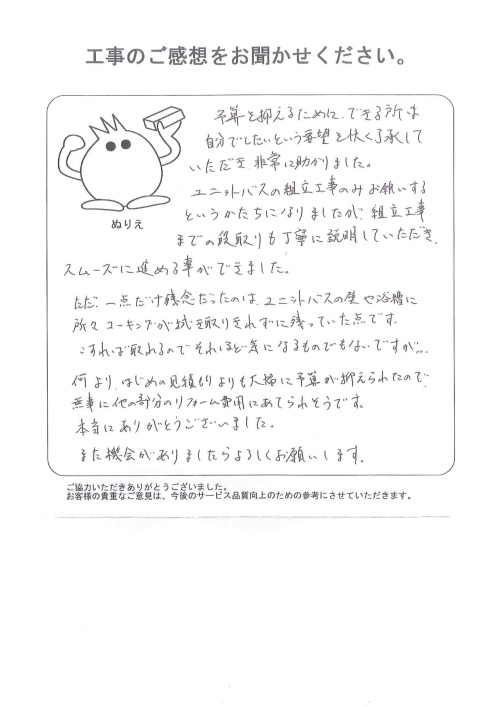 工事のご感想をお聞かせください。
予算を抑えるために、できる所は
自分でしたいという要望を快く了承して
いただき、非常に助かりました。
ユニットバスの組立工事のみお願いする
というかたちになりましたが、組立工事
ぬりえ
までの段取りも丁寧に説明していただき、
スムーズに進める事ができました。
ただ、一点だけ残念だったのは、ユニットバスの壁や浴槽に
所々コーキングが拭き取りきれずに残っていた点です。
こすれば取れるのでそれほど気になるものでもないですが。。。
何より、はじめの見積りよりも大幅に予算が抑えられたので、
無事に他の部分のリフォーム費用にあてられそうです。
本当にありがとうございました。
また機会がありましたらよろしくお願いします。
ご協力いただきありがとうございました。
お客様の貴重なご意見は、今後のサービス品質向上のための参考にさせていただきます。